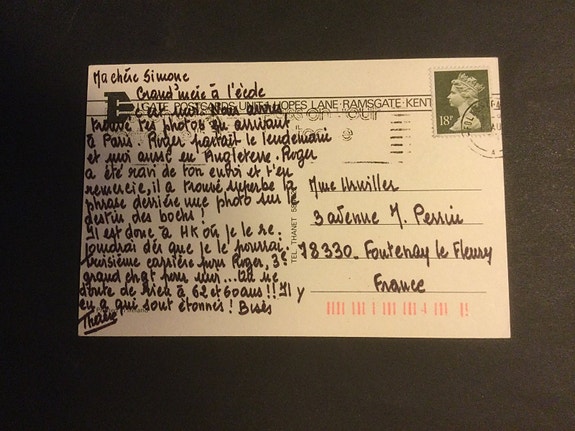 Ma chère Simone
Grand'mère à l'école
et moi! Nous avons
GATE POSTCARDS UNIT HOPES LANE · RAMSGATE · KENT
trouvé tes photos en arrivant
à Paris. Roger partait le lendemain
et moi aussi en Angleterre. Roger
a été ravi de ton envoi et t'en
remercie, il a trouvé superbe la
phrase derrière une photo sur le
destin des boches!
Il est donc à HK où je le re
joindrai dès que je le pourrai.
troisième carrière pour Roger, 3e
grand chgt pour moi... on ne
doute de rien à 62 et 60 ans!! Il y
en a qui sont étonnés! Bises
Thérèse
TEL. THANET
18P
Mme
3 avenue M. Perrin
78330. Fontenay le Fleury
France